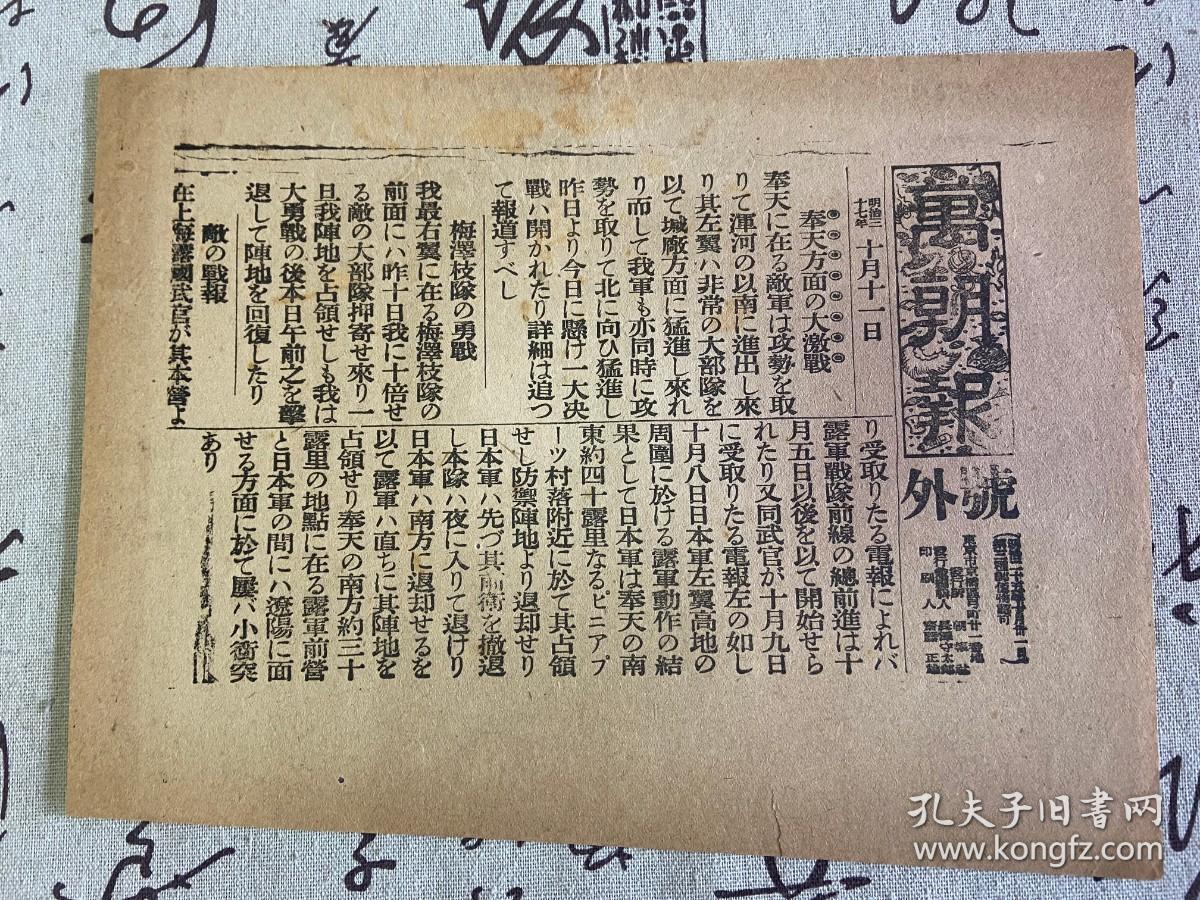 萬朝報
號外
東京市京橋區
發行所 朝報社
印刷人
明治三十七年 十月十一日
奉天方面の大激戰
奉天に在る敵軍は攻勢を取
りて渾河の以南に進出し來
り其左翼ハ非常の大部隊を
以て城廠方面に猛進し來れ
り而して我軍も亦同時に攻
勢を取りて北に向ひ猛進し
昨日より今日に懸け一大决
戰ハ開かれたり詳細は追つ
て報道すべし
梅澤枝隊の勇戰
我最右翼に在る梅澤枝隊の
前面にハ昨十日我に十倍せ
る敵の大部隊押寄せ來り一
旦我陣地を占領せしも我は
大勇戰の後本日午前之を擊
退して陣地を回復したり
敵の戰報
在上海露國武官が其本營よ
り受取りたる電報によれバ
露軍戰隊前線の總前進は十
月五日以後を以て開始せら
れたり又同武官が十月九日
に受取りたる電報左の如し
十月八日日本軍左翼高地の
周圍に於ける露軍動作の結
果として日本軍は奉天の南
東約四十露里なるピニアプ
ーツ村落附近に於て其占領
せし防禦陣地より退却せり
日本軍ハ先づ其前衛を撤退
し本隊ハ夜に入りて退けり
日本軍ハ南方に退却せるを
以て露軍ハ直ちに其陣地を
占領せり奉天の南方約三十
露里の地點に在る露軍前營
と日本軍の間にハ遼陽に面
せる方面に於て屢バ小衝突
あり
孔夫子旧书网
www.kongfz.com